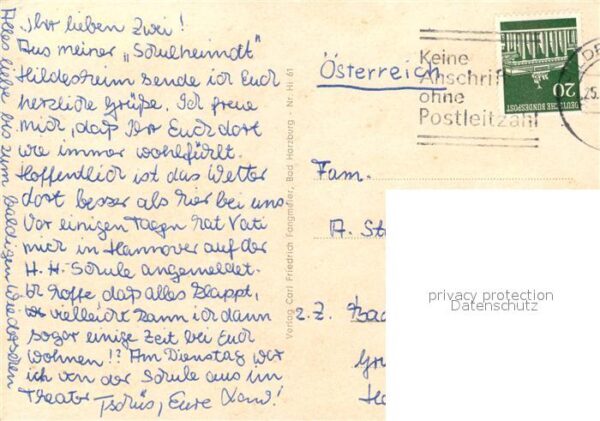 Ihr lieben Zwei!
Aus meiner „Schulheimat"
Hildesheim sende ich Euch
herzliche Grüße. Ich freue
mich, daß Ihr Euch dort
wie immer wohlfühlt.
Hoffentlich ist das Wetter
dort besser als hier bei uns.
Vor einigen Tagen hat Vati
mich in Hannover auf der
H. H. Schule angemeldet.
Ich hoffe, daß alles klappt,
vielleicht kann ich dann
sogar einige Zeit bei Euch
wohnen!? Am Dienstag war
ich von der Schule aus im
Theater
Tschüs, Eure
Alles liebe bis zum baldigen Wiedersehen
Verlag Carl Friedrich Fangmeier, Bad Harzburg - Nr. Hi 61
Österreich
Keine
Anschrift
ohne
Postleitzahl
DEUTSCHE BUNDESPOST
20
25.
Fam.
A. St
z. Z. Bad
privacy protection
Datenschutz